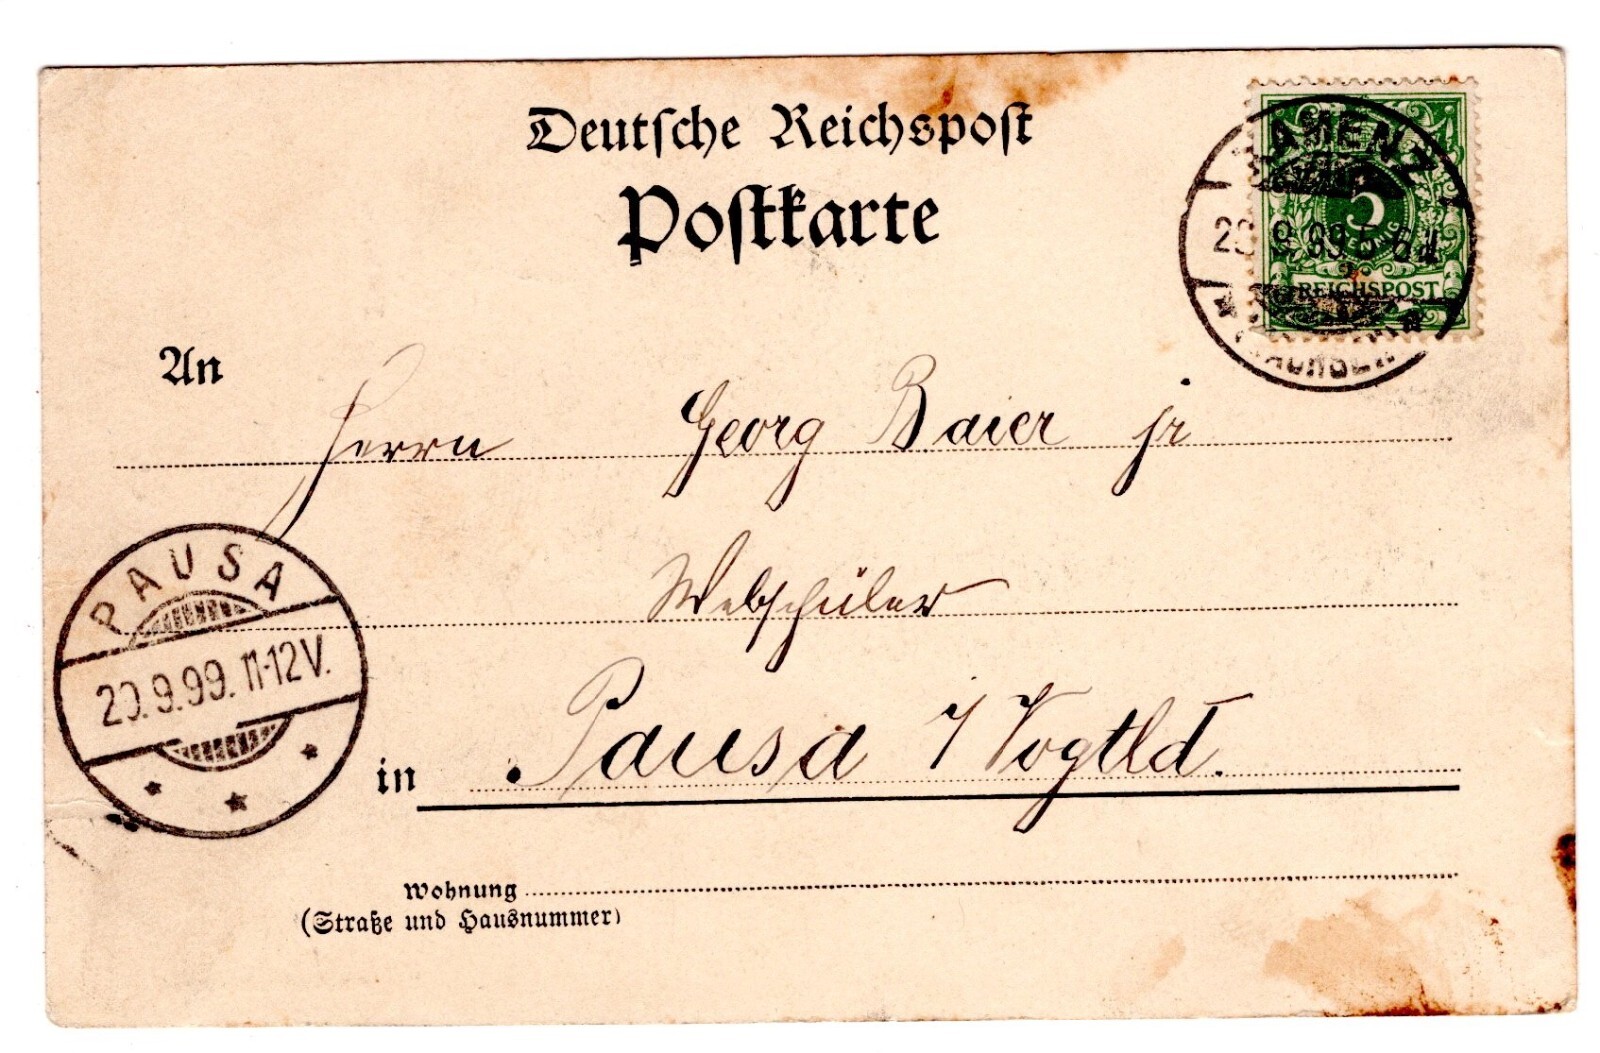 Deutsche Reichspost
Postkarte
KAMENZ
9.99.5-6
(SACHSEN)
5
PFENNIG
REICHSPOST
An
Herrn Georg Baier jr
Webschüler
in Pausa i/Vogtld.
PAUSA
20.9.99.11-12V.
Wohnung
(Straße und Hausnummer)